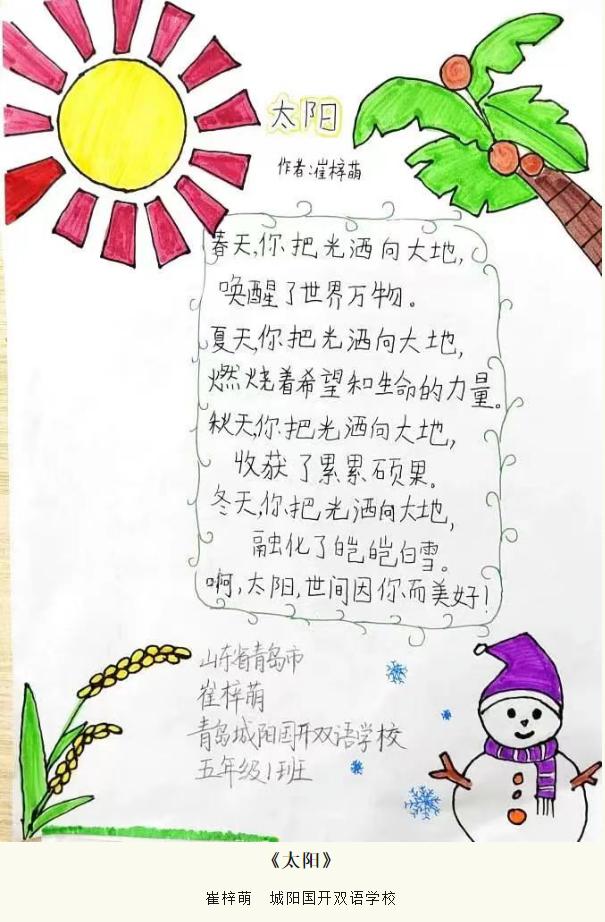 太阳
作者:崔梓萌
春天,你把光洒向大地,
唤醒了世界万物。
夏天,你把光洒向大地,
燃烧着希望和生命的力量。
秋天,你把光洒向大地,
收获了累累硕果。
冬天,你把光洒向大地,
融化了皑皑白雪。
啊,太阳,世间因你而美好!
山东省青岛市
崔梓萌
青岛城阳国开双语学校
五年级1班
《太阳》
崔梓萌 城阳国开双语学校